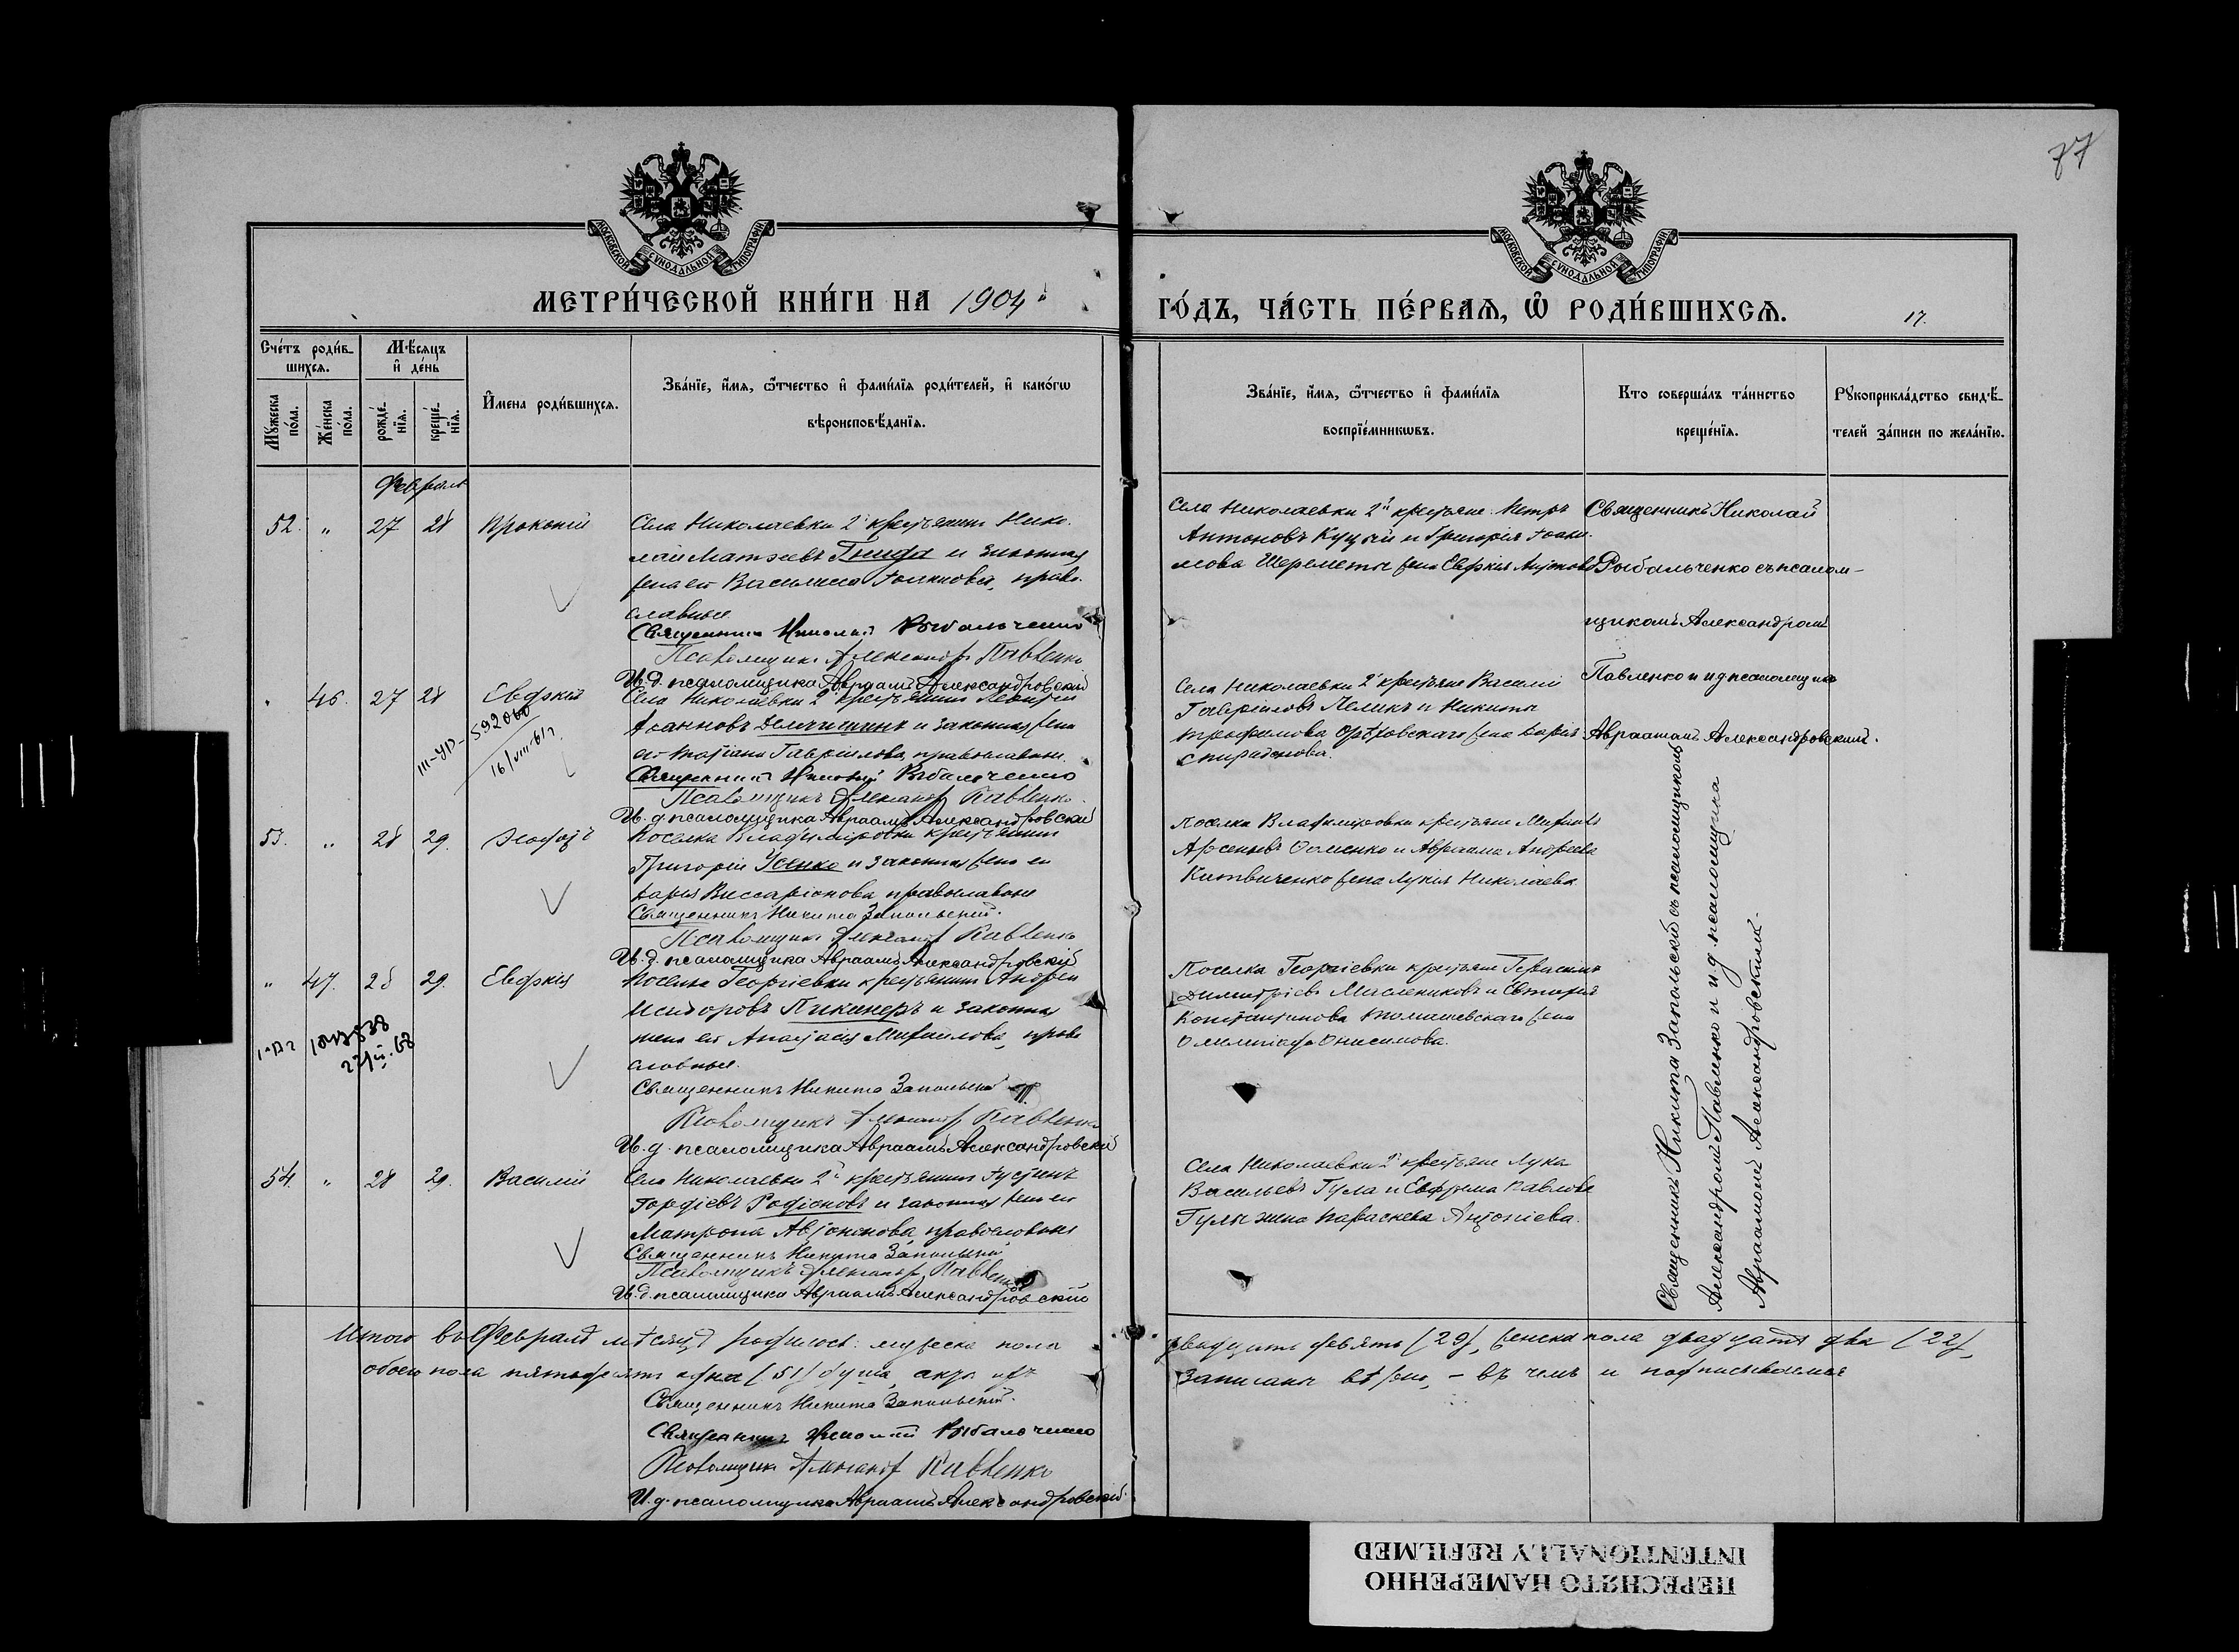 77
МОСКОВСКОЙ СѴНОДАЛЬНОЙ ТИПОГРАФІИ
МОСКОВСКОЙ СѴНОДАЛЬНОЙ ТИПОГРАФІИ
МЕТРИ́ЧЕСКОЙ КНИ́ГИ НА 1904 й
ГО́ДЪ, ЧА́СТЬ ПЕ́РВАѦ, Ѽ РОДИ́ВШИХСѦ.
17.
Сче́тъ роди́вшихся.
Мѣ́сяцъ и҆ де́нь
Мꙋ́жеска по́ла.
Же́нска по́ла.
рожде́нїѧ.
креще́нїѧ.
И҆мена роди́вшихсѧ.
Зва́нїе, и҆́мѧ, ѻ҆́тчество и҆ фами́лїѧ роди́телей, и҆ како́гѡ
вѣроисповѣ́данїѧ.
Зва́нїе, и҆́мѧ, ѻ҆́тчество и҆ фами́лїѧ
воспрїе́мникѡвъ.
Кто соверша́лъ та́инство
креще́нїѧ.
Рꙋкоприкла́дство свидѣ́-
телей за́писи по жела́нїю.
Февраль
52. " 27 28 Прокопій
Села Николаевки 2й крестьянинъ Нико-
лай Матѳеевъ Гнида и законная
жена его Василиса Іоаннова, право-
славные.
Священникъ Николай Рыбальченко
Псаломщикъ Александръ Павленко
И. д. псаломщика Авраамъ Александровскій
Села Николаевки 2й крестьяне: Петръ
Антоновъ Куцый и Григорія Іоанн-
нова Шеремета жена Евфимія
Священникъ Николай
Рыбальченко съ псалом-
щикомъ Александромъ
Павленко и и д псаломщика
Авраамомъ Александровскимъ.
" 46. 27 28 Евфимія
III-УР-592060
16/VIII-61г
Села Николаевки 2й крестьянинъ Леонтій
Іоанновъ и законная жена
его Татіана Гавріилова, православные.
Священникъ Николай Рыбальченко
Псаломщикъ Александръ Павленко
И. д. псаломщика Авраамъ Александровскій
Села Николаевки 2й крестьяне Василій
Гавріиловъ и Никиты
Трофимова Орѣховскаго жена Дарія
Спиридонова.
53. " 28 29.
Поселка Владиміровки крестьянинъ
Григорій Усенко и законная жена его
Дарія Виссаріонова, православные
Священникъ Никита Запольскій.
Псаломщикъ Александръ Павленко
И. д. псаломщика Авраамъ Александровскій
Поселка Владиміровки крестьяне
Арсеньевъ и Авраама Андреева
Литвиченко жена Лукія Николаева
" 47. 28 29. Евфимія
Поселка Георгіевки крестьянинъ Андрей
Исидоровъ Пикинеръ и законная
жена его Анастасія Михаилова, право-
славные.
Священникъ Никита Запольскій
Псаломщикъ Александръ Павленко
И. д. псаломщика Авраамъ Александровскій
Поселка Георгіевки крестьяне Герасимъ
Димитріевъ Маслениковъ и
Константинова Томашевскаго жена
Олимпіада Онисимова.
54. " 28 29. Василій
Села Николаевки 2й крестьянинъ Іустинъ
Гордіевъ Родіоновъ и законная жена его
Матрона Автономова, православные
Священникъ Никита Запольскій
Псаломщикъ Александръ Павленко
И. д. псаломщика Авраамъ Александровскій
Села Николаевки 2й крестьяне Лука
Васильевъ Гула и Ефрема Павлова
Гулы жена Параскева Антоніева.
Священникъ Никита Запольскій съ псаломщикомъ
Александромъ Павленко и и.д. псаломщика
Авраамомъ Александровскимъ.
Итого въ Февралѣ мѣсяцѣ родилось: мужеска пола двадцать девять (29), женска пола двадцать два (22),
обоего пола пятьдесятъ одна (51) душа, записаны вѣрно, – въ чемъ и подписываемся
Священникъ Никита Запольскій.
Священникъ Николай Рыбальченко
Псаломщикъ Александръ Павленко
И. д. псаломщика Авраамъ Александровскій.
ПЕРЕСНЯТО НАМЕРЕННО
INTENTIONALLY REFILMED